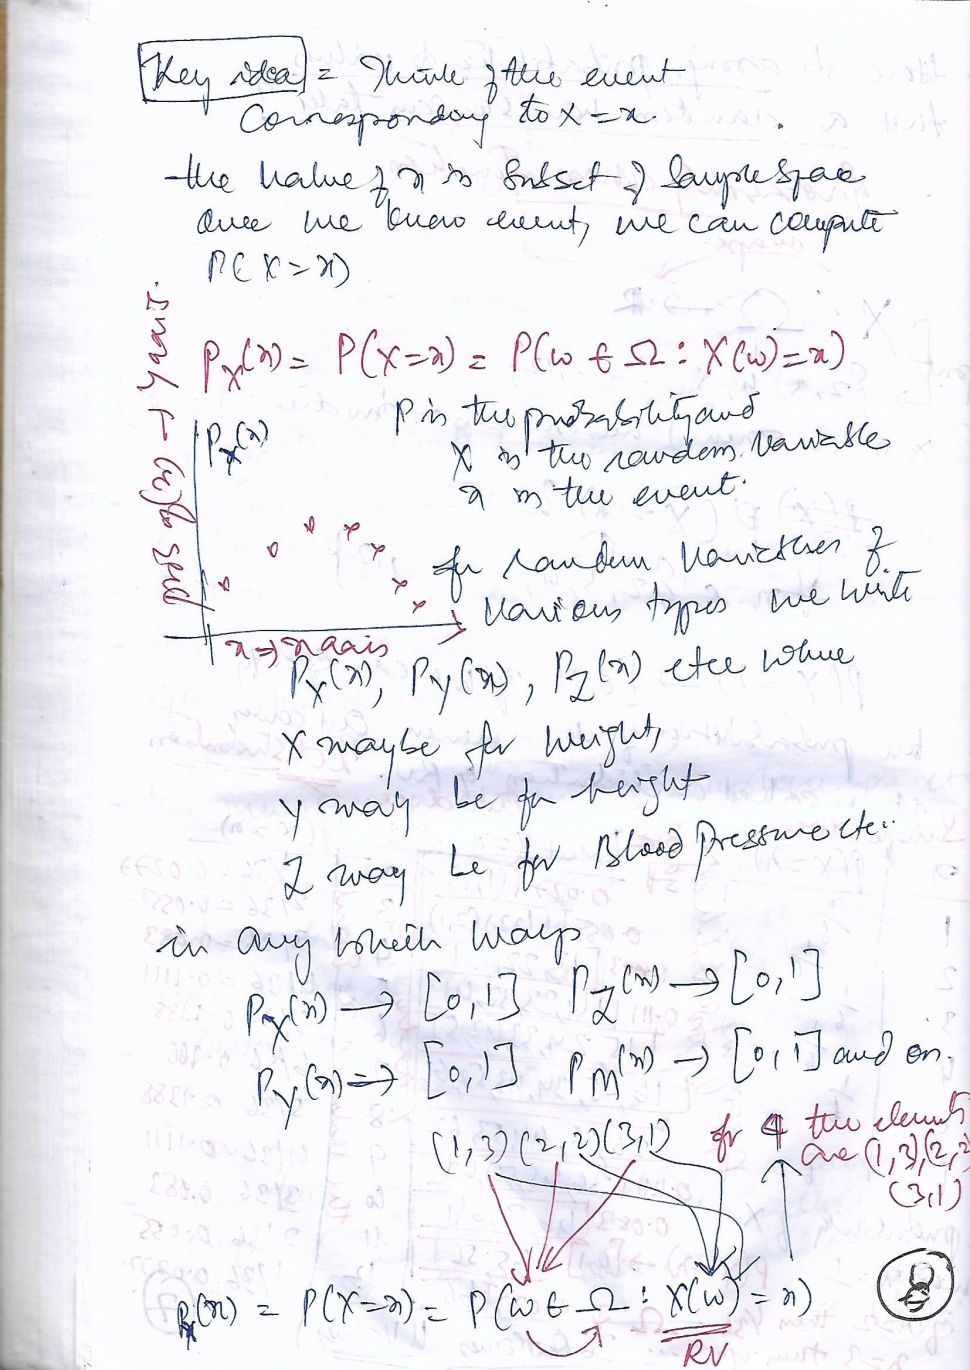 Key idea = Think of the event
Corresponding to X = x.
the value of x is subset of Sample space
Once we know event, we can compute
P(X = x)
P_X(x) = P(X=x) = P(ω ∈ Ω : X(ω) = x)
P_X(x) → y axis.
P_X(x)
P is the probability and
X is the random variable
x is the event.
for random variables of
various types we write
x → x axis
P_X(x), P_Y(x), P_Z(x) etc where
X maybe for weight,
Y may be for height
Z may be for Blood Pressure etc..
in any which ways
P_X(x) → [0,1] P_Z(x) → [0,1]
P_Y(x) → [0,1] P_M(x) → [0,1] and on.
(1,3) (2,2) (3,1) for 4 the elements
are (1,3), (2,2)
(3,1)
P_X(x) = P(X=x) = P(ω ∈ Ω : X(ω) = x)
RV
8